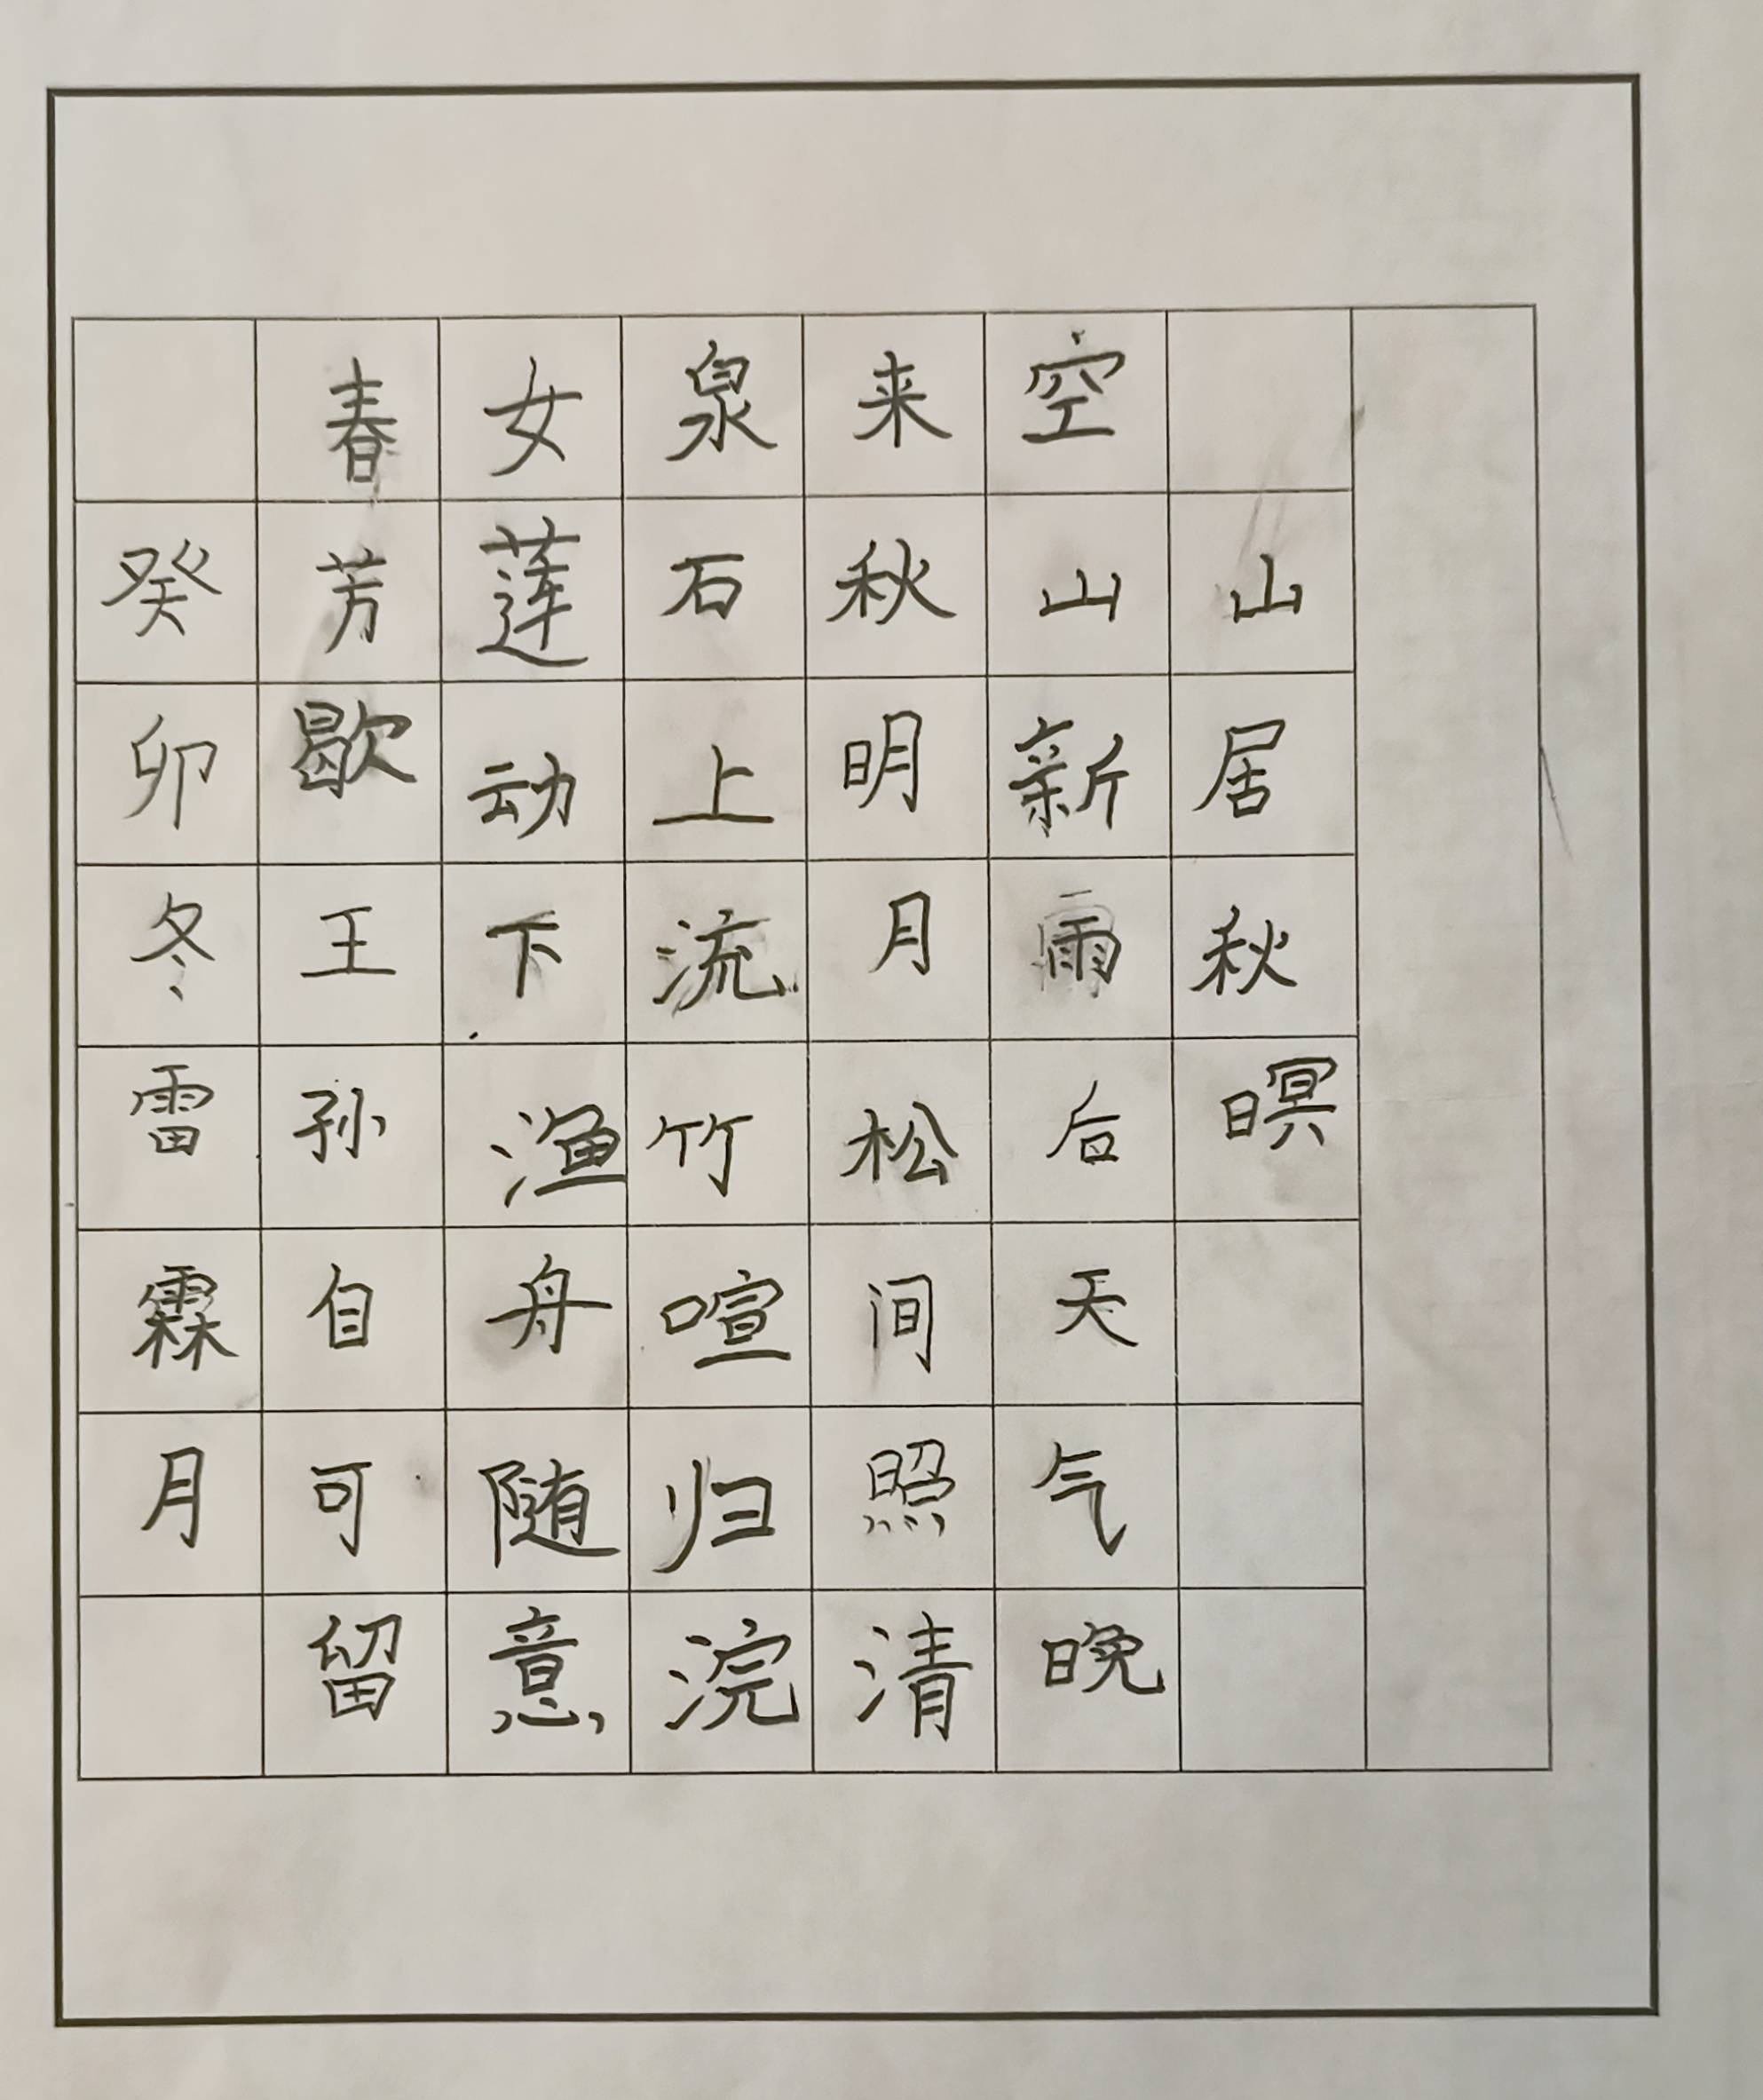 山居秋暝
空山新雨后天气晚
来秋明月松间照清
泉石上流竹喧归浣
女莲动下渔舟随意
春芳歇王孙自可留
癸卯冬雷霖月